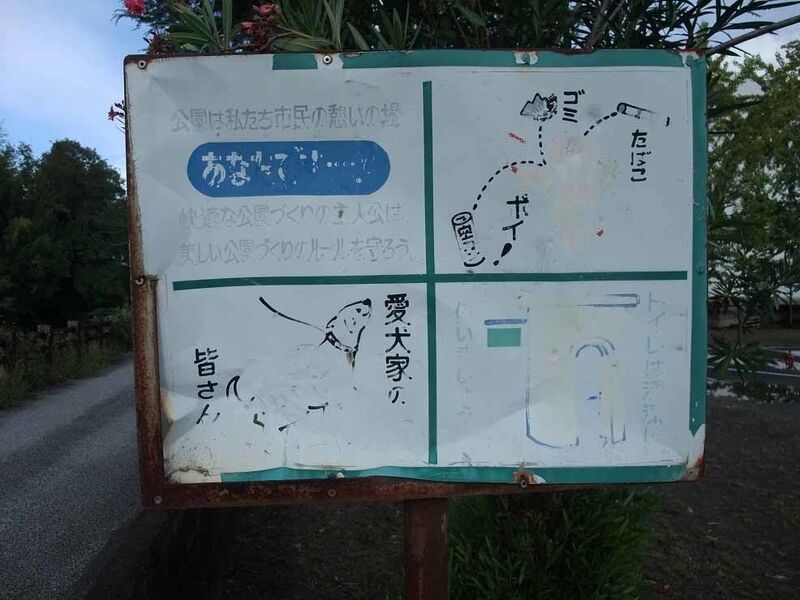 公園は私たち市民の憩いの場
あなたです....!
快適な公園づくりの主人公は
美しい公園づくりのルールを守ろう
ゴミ
たばこ
ポイ!
空カン
愛犬家の
皆さん
トイレは